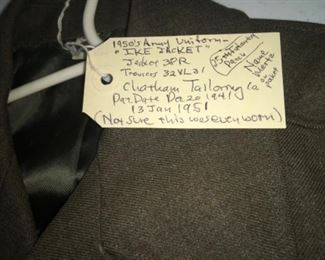 1950's Army Uniform -
"IKE JACKET"
Jacket 38R
Trousers 32XL31
Chatham Tailoring Co
Pat. Date Dec 20 1941
13 Jan 1951
(Not Sure this was even worn)
Patch
Name
Wertz
on
jacket